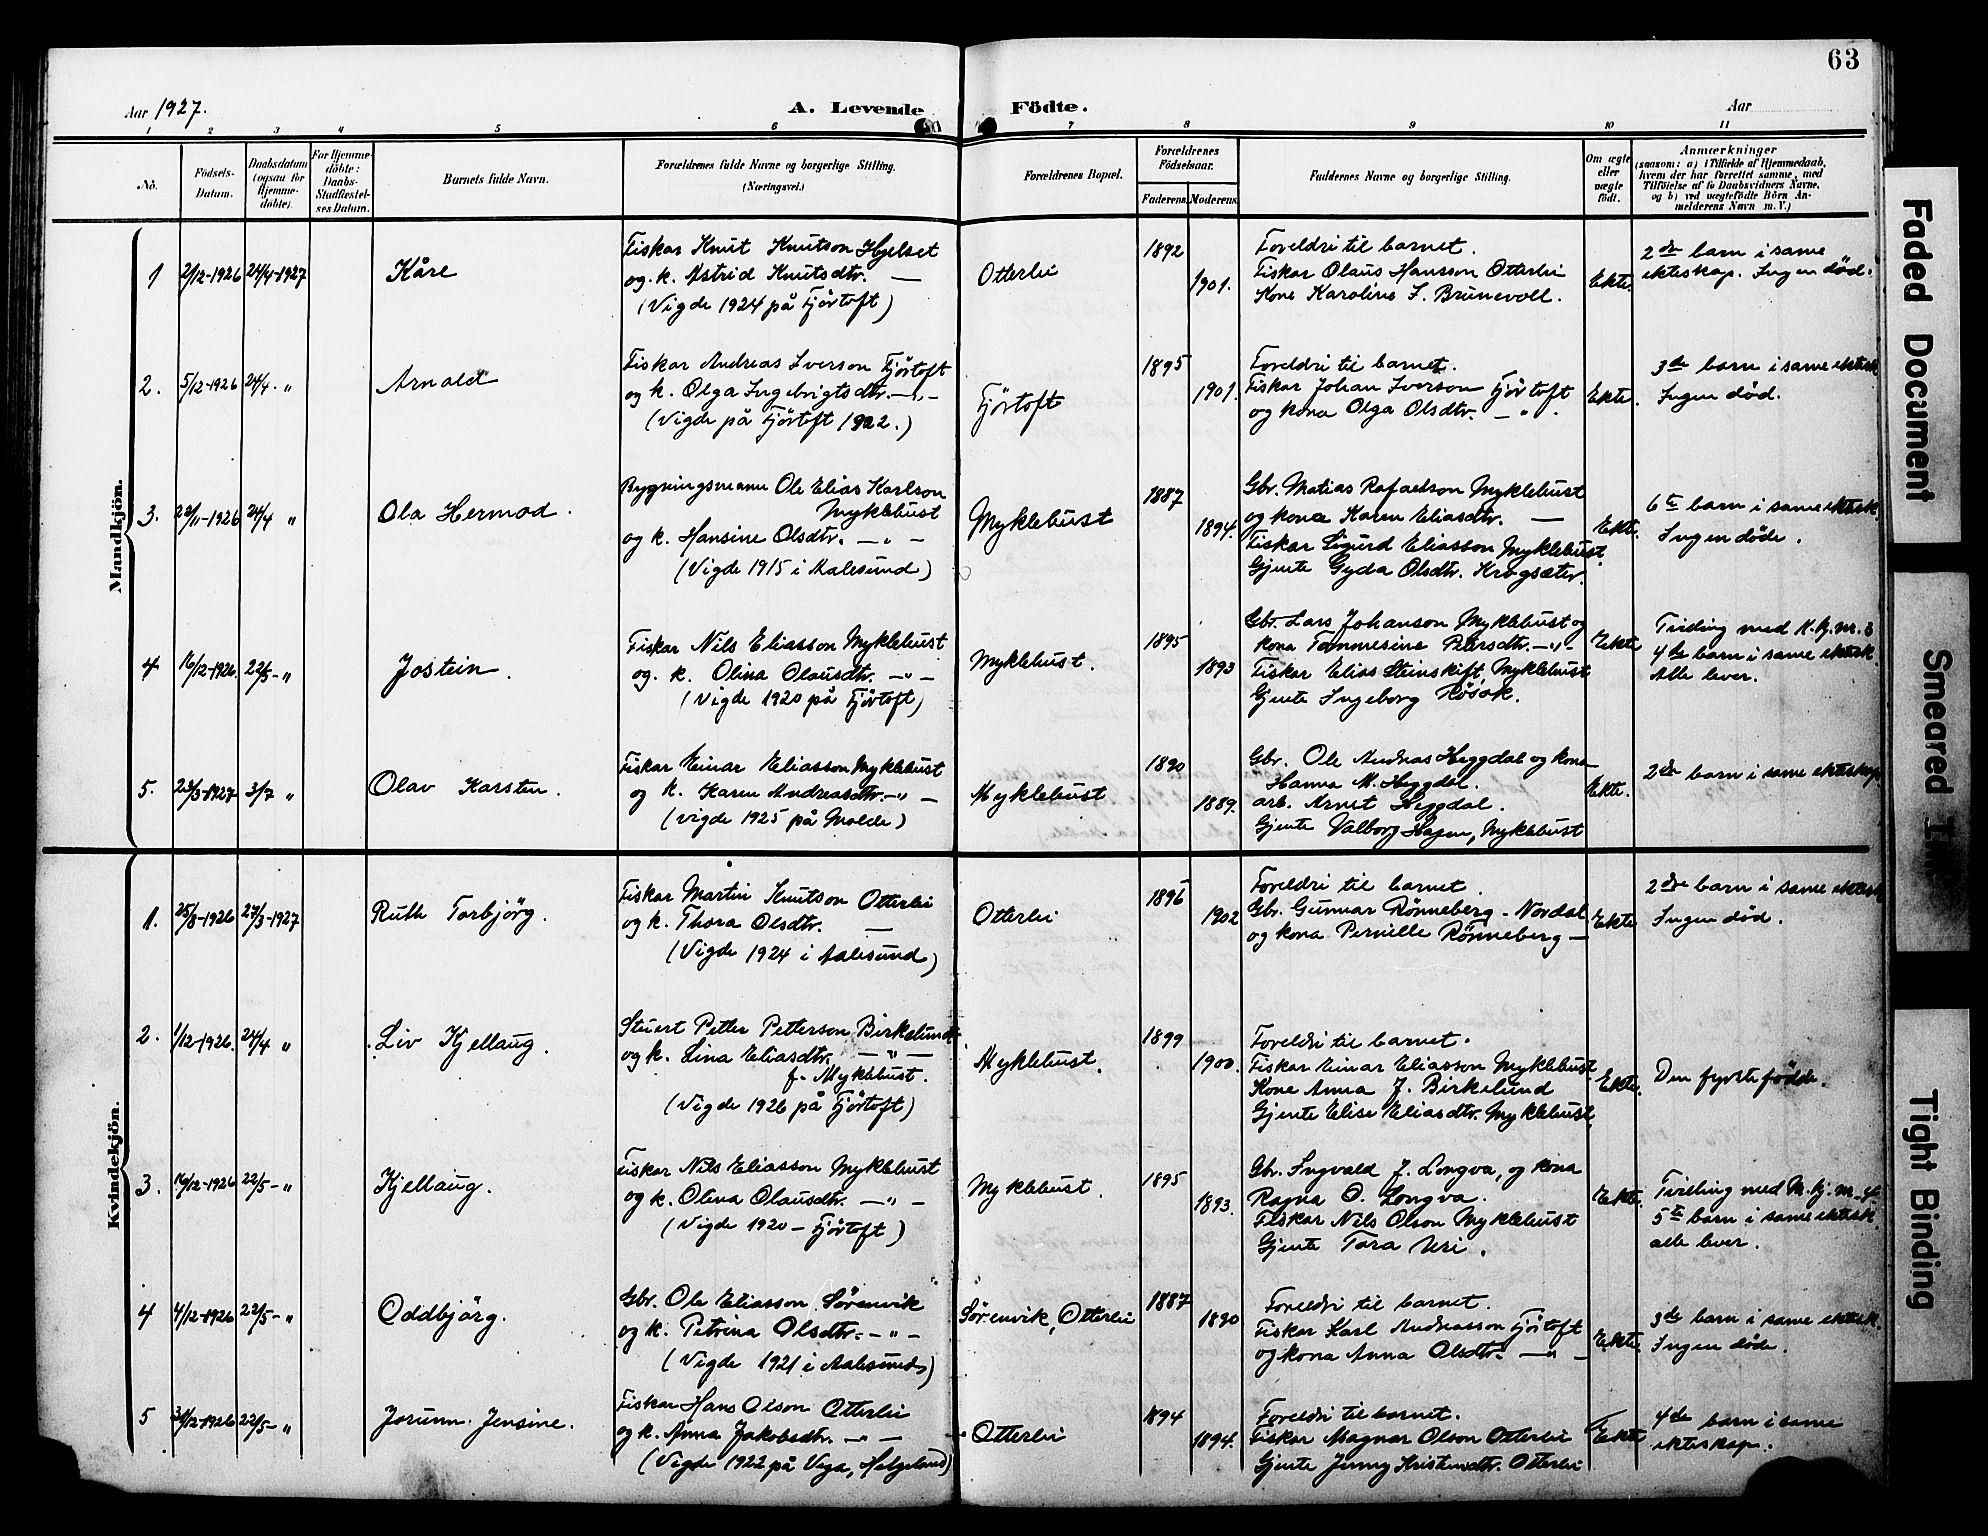 63
Aar 1927. A. Levende Födte. Aar
1 2 3 4 5 6 7 8 9 10 11
No. Födsels-Datum. Daabsdatum (ogsaa for Hjemme-döbte). For Hjemme-döbte: Daabs-Stadfæstel-ses Datum. Barnets fulde Navn. Forældrenes fulde Navne og borgerlige Stilling. (Næringsvei.) Forældrenes Bopæl. Forældrenes Födselsaar. Faderens. Moderens. Faddernes Navne og borgerlige Stilling. Om ægte eller uægte födt. Anmærkninger (saasom: a) i Tilfælde af Hjemmedaab, hvem der har forrettet samme, med Tilföielse af to Daabsvidners Navne, og b) ved uægtefödte Börn An-melderens Navn m. V.)
Mandkjön.
1 2/12-1926 24/4-1927 Kåre
Fiskar Knut Knutson Hjelset
og. k. Astrid Knutsdtr. —
(Vigde 1924 på Fjörtoft)
Otterlei 1892 1901.
Foreldri til barnet.
Fiskar Olaus Hansson Otterlei
Kone Karoline I. Brunevoll.
Ekte.
2dre barn i same
ekteskap. Ingen död.
2. 5/12-1926 24/4. " Arnold
Fiskar Andreas Iverson Fjörtoft
og k. Olga Ingebrigtsdtr. — " —
(Vigde på Fjörtoft 1922.)
Fjörtoft 1895 1901.
Foreldri til barnet.
Fiskar Johan Iverson Fjörtoft
og kona Olga Olsdtr. — " .
Ekte.
3de barn i same ektesk.
Ingen död.
3. 22/11-1926 24/4 " Ola Hermod.
Bygningsmann Ole Elias Karlson
Myklebust
og k. Hansine Olsdtr. — " —
(Vigde 1915 i Aalesund)
Myklebust 1887 1894.
Gbr. Matias Rafaelson Myklebust
og kona Karen Eliasdtr. —
Fiskar Sigurd Eliasson Myklebust.
Gjente Gyda Olsdtr. Krogsæter.
Ekte.
6te barn i same ektesk.
Ingen döde.
4 16/12-1926. 22/5- " Jostein.
Fiskar Nils Eliasson Myklebust
og. k. Olina Olausdtr. — " —
(Vigde 1920 på Fjörtoft)
Myklebust. 1895 1893
Gbr. Lars Johanson Myklebust og
kona Tommesine Petersdtr. — " —
Fiskar Elias Steinskift, Myklebust
Gjente Ingeborg Røsok.
Ekte
Tvilling med K.kj. nr. 3
4de barn i same ektesk.
Alle lever.
5. 23/3-1927 3/7 " Olav Karsten.
Fiskar Einar Eliasson Myklebust
og k. Karen Andreasdtr. — " —
(vigde 1925 på Molde)
Myklebust 1890 1889.
Gbr. Ole Andreas Heggdal og kona
Hanna M. Heggdal.
arb. Arnet Heggdal.
Gjente Valborg Hagen, Myklebust
Ekte.
2dre barn i same ekteskap.
Kvindekjön.
1. 25/8-1926 27/3-1927 Ruth Torbjörg.
Fiskar Martin Knutson Otterlei
og k. Thora Olsdtr. —
(Vigde 1924 i Aalesund)
Otterlei 1896 1902
Foreldri til barnet.
Gbr. Gunnar Rønneberg - Nordal
og kona Pernille Rønneberg —
Ekte
2dre barn i same ektesk.
Ingen död.
2. 1/12-1926. 24/4 " Liv Kjellaug.
Stuert Petter Petterson Birkelund
og k. Lina Eliasdtr. — " —
f. Myklebust.
(Vigde 1926 på Fjörtoft)
Myklebust. 1899 1900.
Foreldri til barnet.
Fiskar Einar Eliasson Myklebust
Kone Anna J. Birkelund
Gjente Elise Eliasdtr. Myklebust
Ekte.
Den fyrstefödde.
3. 16/12-1926 22/5- " Kjellaug.
Fiskar Nils Eliasson Myklebust
og k. Olina Olausdtr. — " —
(Vigde 1920 - Fjörtoft)
Myklebust. 1895 1893.
Gbr. Ingvald J. Longva, og kona
Ragna O. Longva.
Fiskar Nils Olson Myklebust
Gjente Tora Uri.
Ekte.
Tvilling med M.kj. nr. 4.
5te barn i same ektesk.
alle lever.
4 4/12-1926 22/5- " Oddbjörg.
Gbr. Ole Eliasson Sørenvik
og k. Petrina Olsdtr. — " —
(Vigde 1921 i Aalesund)
Sørenvik, Otterlei 1887 1890
Foreldri til barnet.
Fiskar Karl Andreasson Fjörtoft
og kona Anna Olsdtr. — " —
Ekte.
3de barn i same ektesk.
Ingen döde.
5 31/12-1926 22/5- " Jorunn Jensine.
Fiskar Hans Olson Otterlei
og k. Anna Jakobsdtr. — " —
(Vigde 1922 på Vega, Helgeland)
Otterlei 1894 1894.
Foreldri til barnet.
Fiskar Magnar Olson Otterlei
Gjente Jenny Kristensdtr. Otterlei
Ekte
4de barn i same
ekteskap.
Faded Document
Smeared Ink
Tight Binding